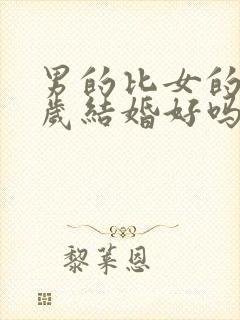 男的比女的
歲結婚好嗎
黎萊恩